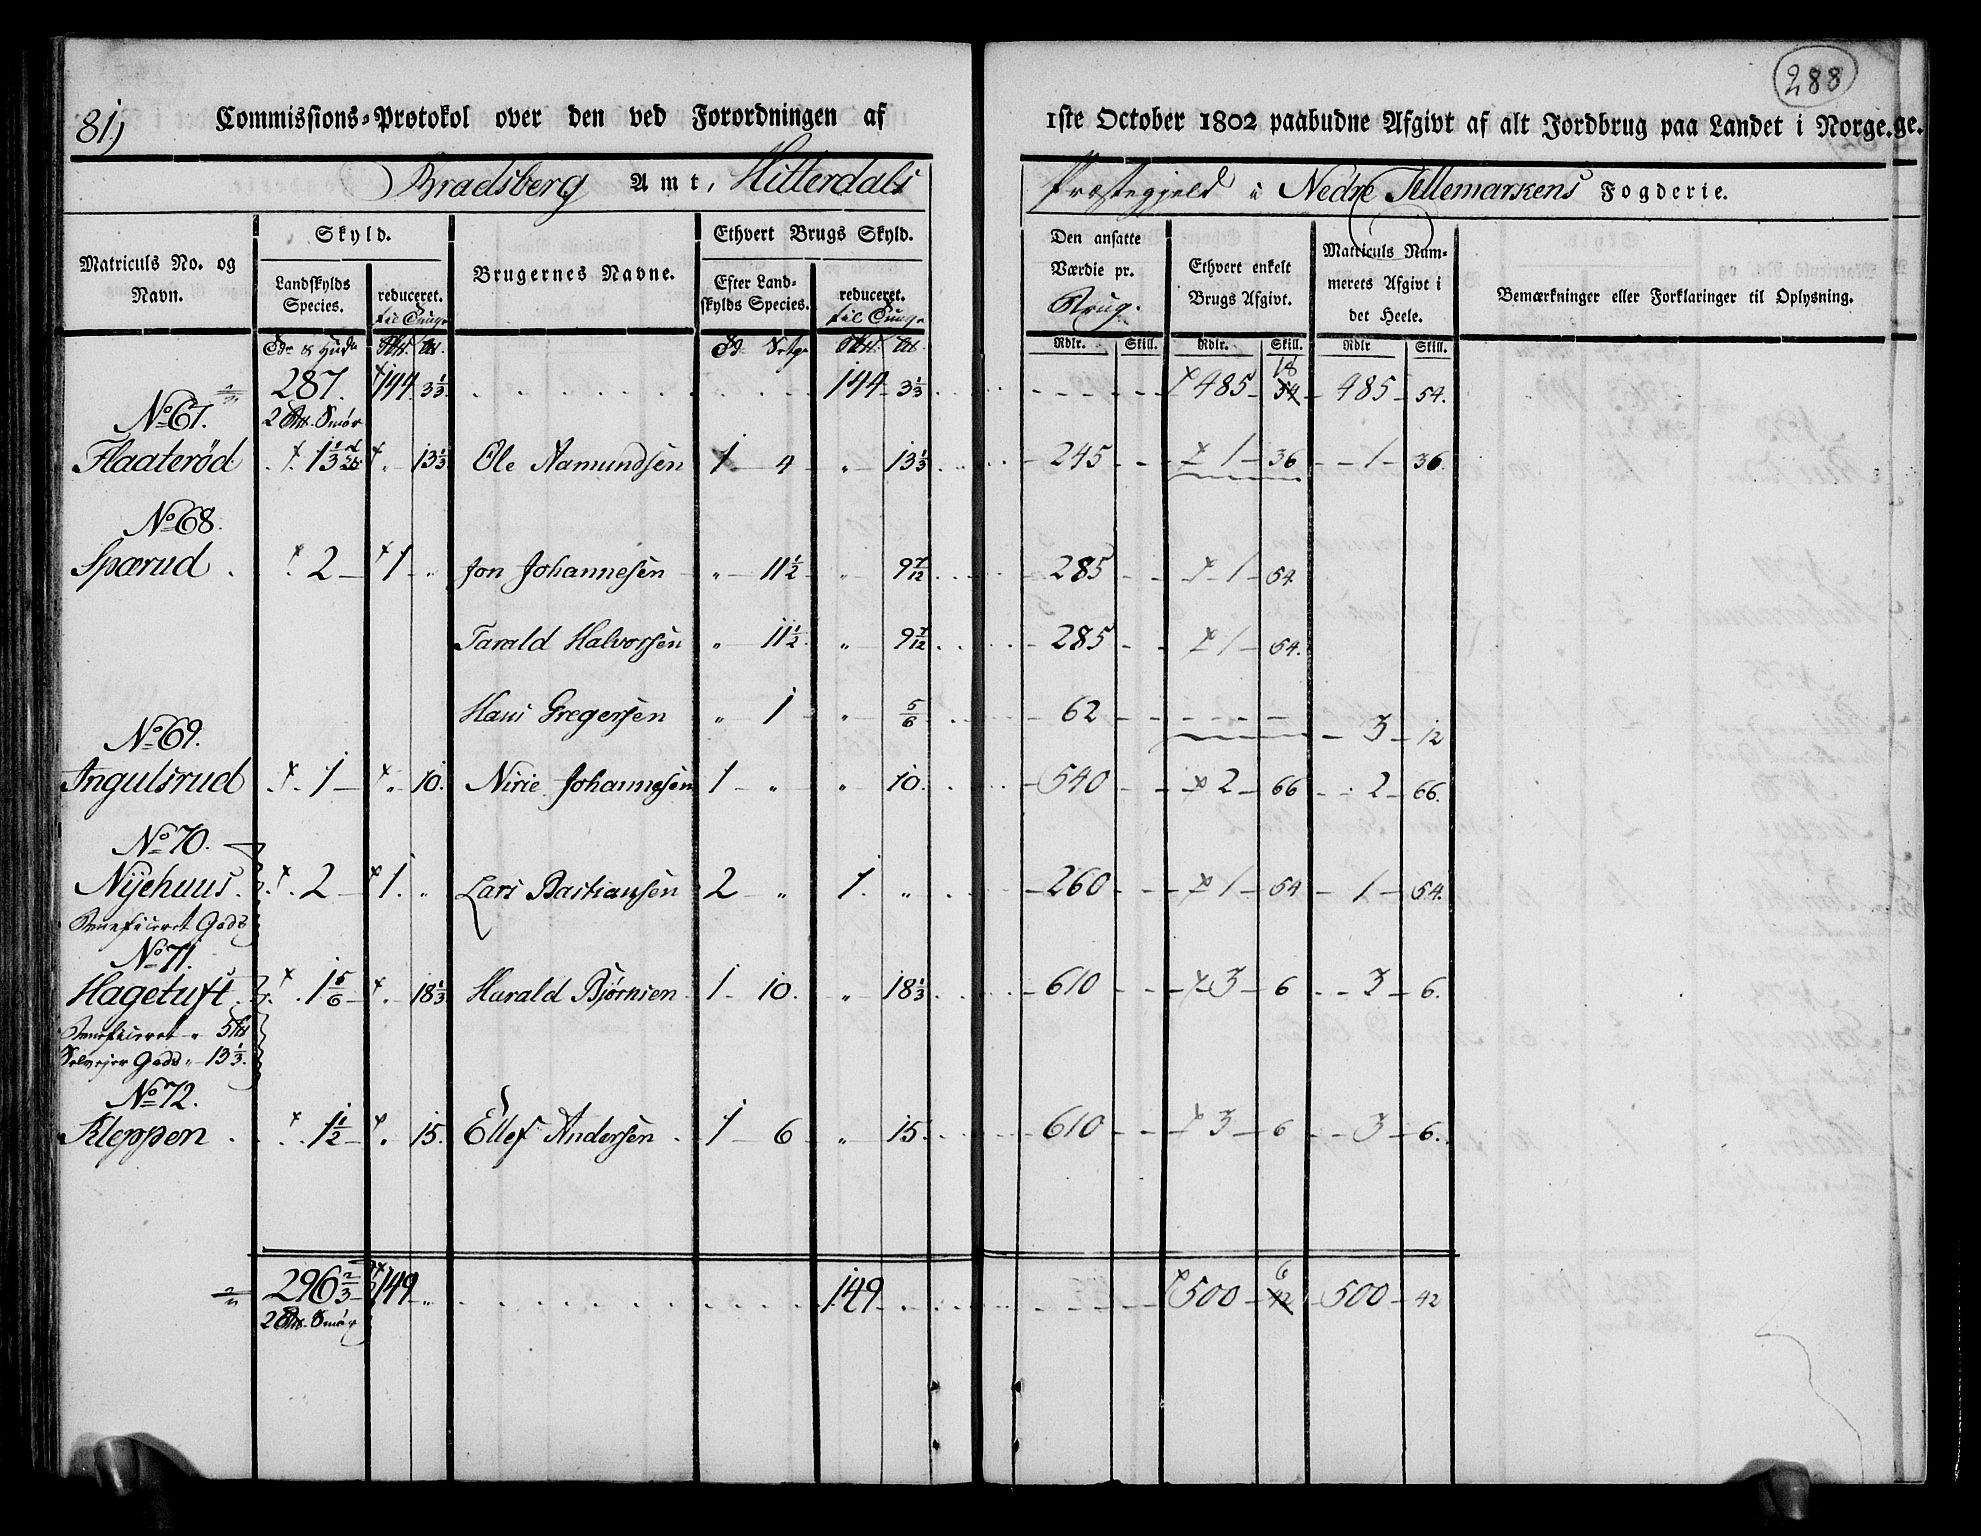 81,
288
Commissions-Protokol over den ved Forordningen af 1ste October 1802 paabudne Afgivt af alt Jordbrug paa Landet i Norge.
Bradsberg Amt, Hitterdals Præstegjeld i Nedre Tellemarkens Fogderie.
Matriculs No. og Navn.
Skyld.
Landskylds Species.
reduceret.
til Tunge
Brugernes Navne.
Ethvert Brugs Skyld.
Efter Landskylds Species.
reduceret.
til Tunge
Den ansatte Værdie pr. Brug.
Ethvert enkelt Brugs Afgivt.
Matriculs Nummerets Afgivt i det Heele.
Bemærkninger eller Forklaringer til Oplysning.
Rdlr. Skill. Rdlr. Skill. Rdlr Skill.
287. 144 3 1/3 144 3 1/3 485 54 18 485 54.
2 Smør
No 67.
Flaaterød 1 1/3 13 1/3 Ole Aamundsen 1 4 " 13 1/3 245 1 36 1 36.
No 68.
Spærud 2 1 " Jon Johannesen " 11 1/2 " 9 7/12 285 1 54.
Tarald Halvorsen " 11 1/2 " 9 7/12 285 1 54.
Hans Gregersen " 1 " 5/6 62 3 12
No 69.
Ingulsrud 1 " 10. Nirie Johannesen 1 " " 10. 540 2 66 2 66.
No 70.
Nyehuus. 2 1. " Lars Bastiansen 2 " 1. " 260 1 54 1 54.
Beneficeret Gods
No 71.
Hagetuft 1 5/6 " 18 1/3 Harald Bjørnsen 1 10. " 18 1/3 610 3 6 3 6.
Beneficeret " 5
Selvejer Gods " 13 1/3.
No 72.
Kleppen 1 1/2 " 15. Ellef Andersen 1 6 " 15. 610 3 6 3 6.
296 2/3 149 " 149 500 42 6 500 42
2 Smør